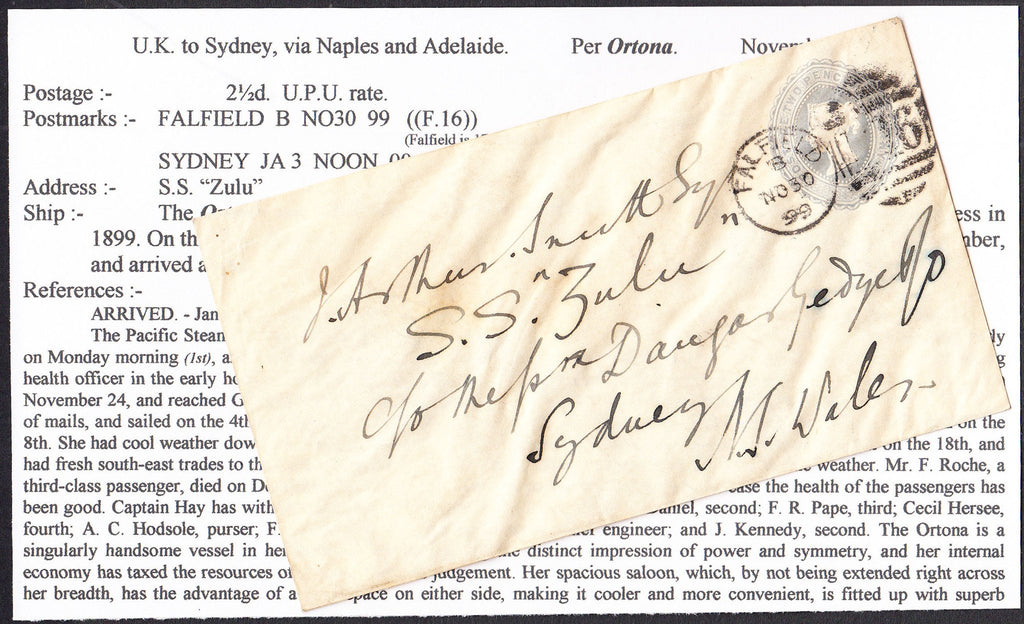 U.K. to Sydney, via Naples and Adelaide. Per Ortona. Novem
Postage :- 2½d. U.P.U. rate.
Postmarks :- FALFIELD B NO30 99 ((F.16))
(Falfield is
SYDNEY JA 3 NOON 00
Address :- S.S. “Zulu”
Ship :- The Ort
ess in
1899. On th
mber,
and arrived a
References :-
ARRIVED. - Jan
The Pacific Steam
ly
on Monday morning (1st), a
g
health officer in the early ho
November 24, and reached G
of mails, and sailed on the 4th
on the
8th. She had cool weather dow
on the 18th, and
had fresh south-east trades to th
weather. Mr. F. Roche, a
third-class passenger, died on De
case the health of the passengers has
been good. Captain Hay has with
Daniel, second; F. R. Pape, third; Cecil Hersee,
fourth; A. C. Hodsole, purser; F.
engineer; and J. Kennedy, second. The Ortona is a
singularly handsome vessel in her
distinct impression of power and symmetry, and her internal
economy has taxed the resources of
judgement. Her spacious saloon, which, by not being extended right across
her breadth, has the advantage of a
space on either side, making it cooler and more convenient, is fitted up with superb
TWO PENCE
FALFIELD
B
NO 30
99
J. Arthur. Smith Esq
"S.S. Zulu"
c/o the Dangar Gedye & Co
Sydney
N.S. Wales